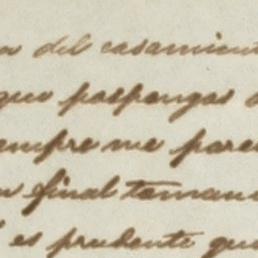 del casamient
que pospongas
empre me pare
final toman
es prudente que